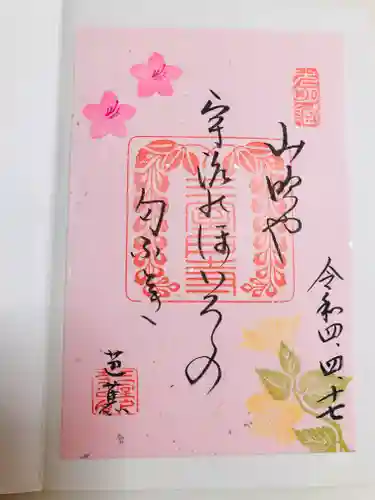 令和四、四、十七
山吹や
宇治のほいろの
匂ふ時
芭蕉